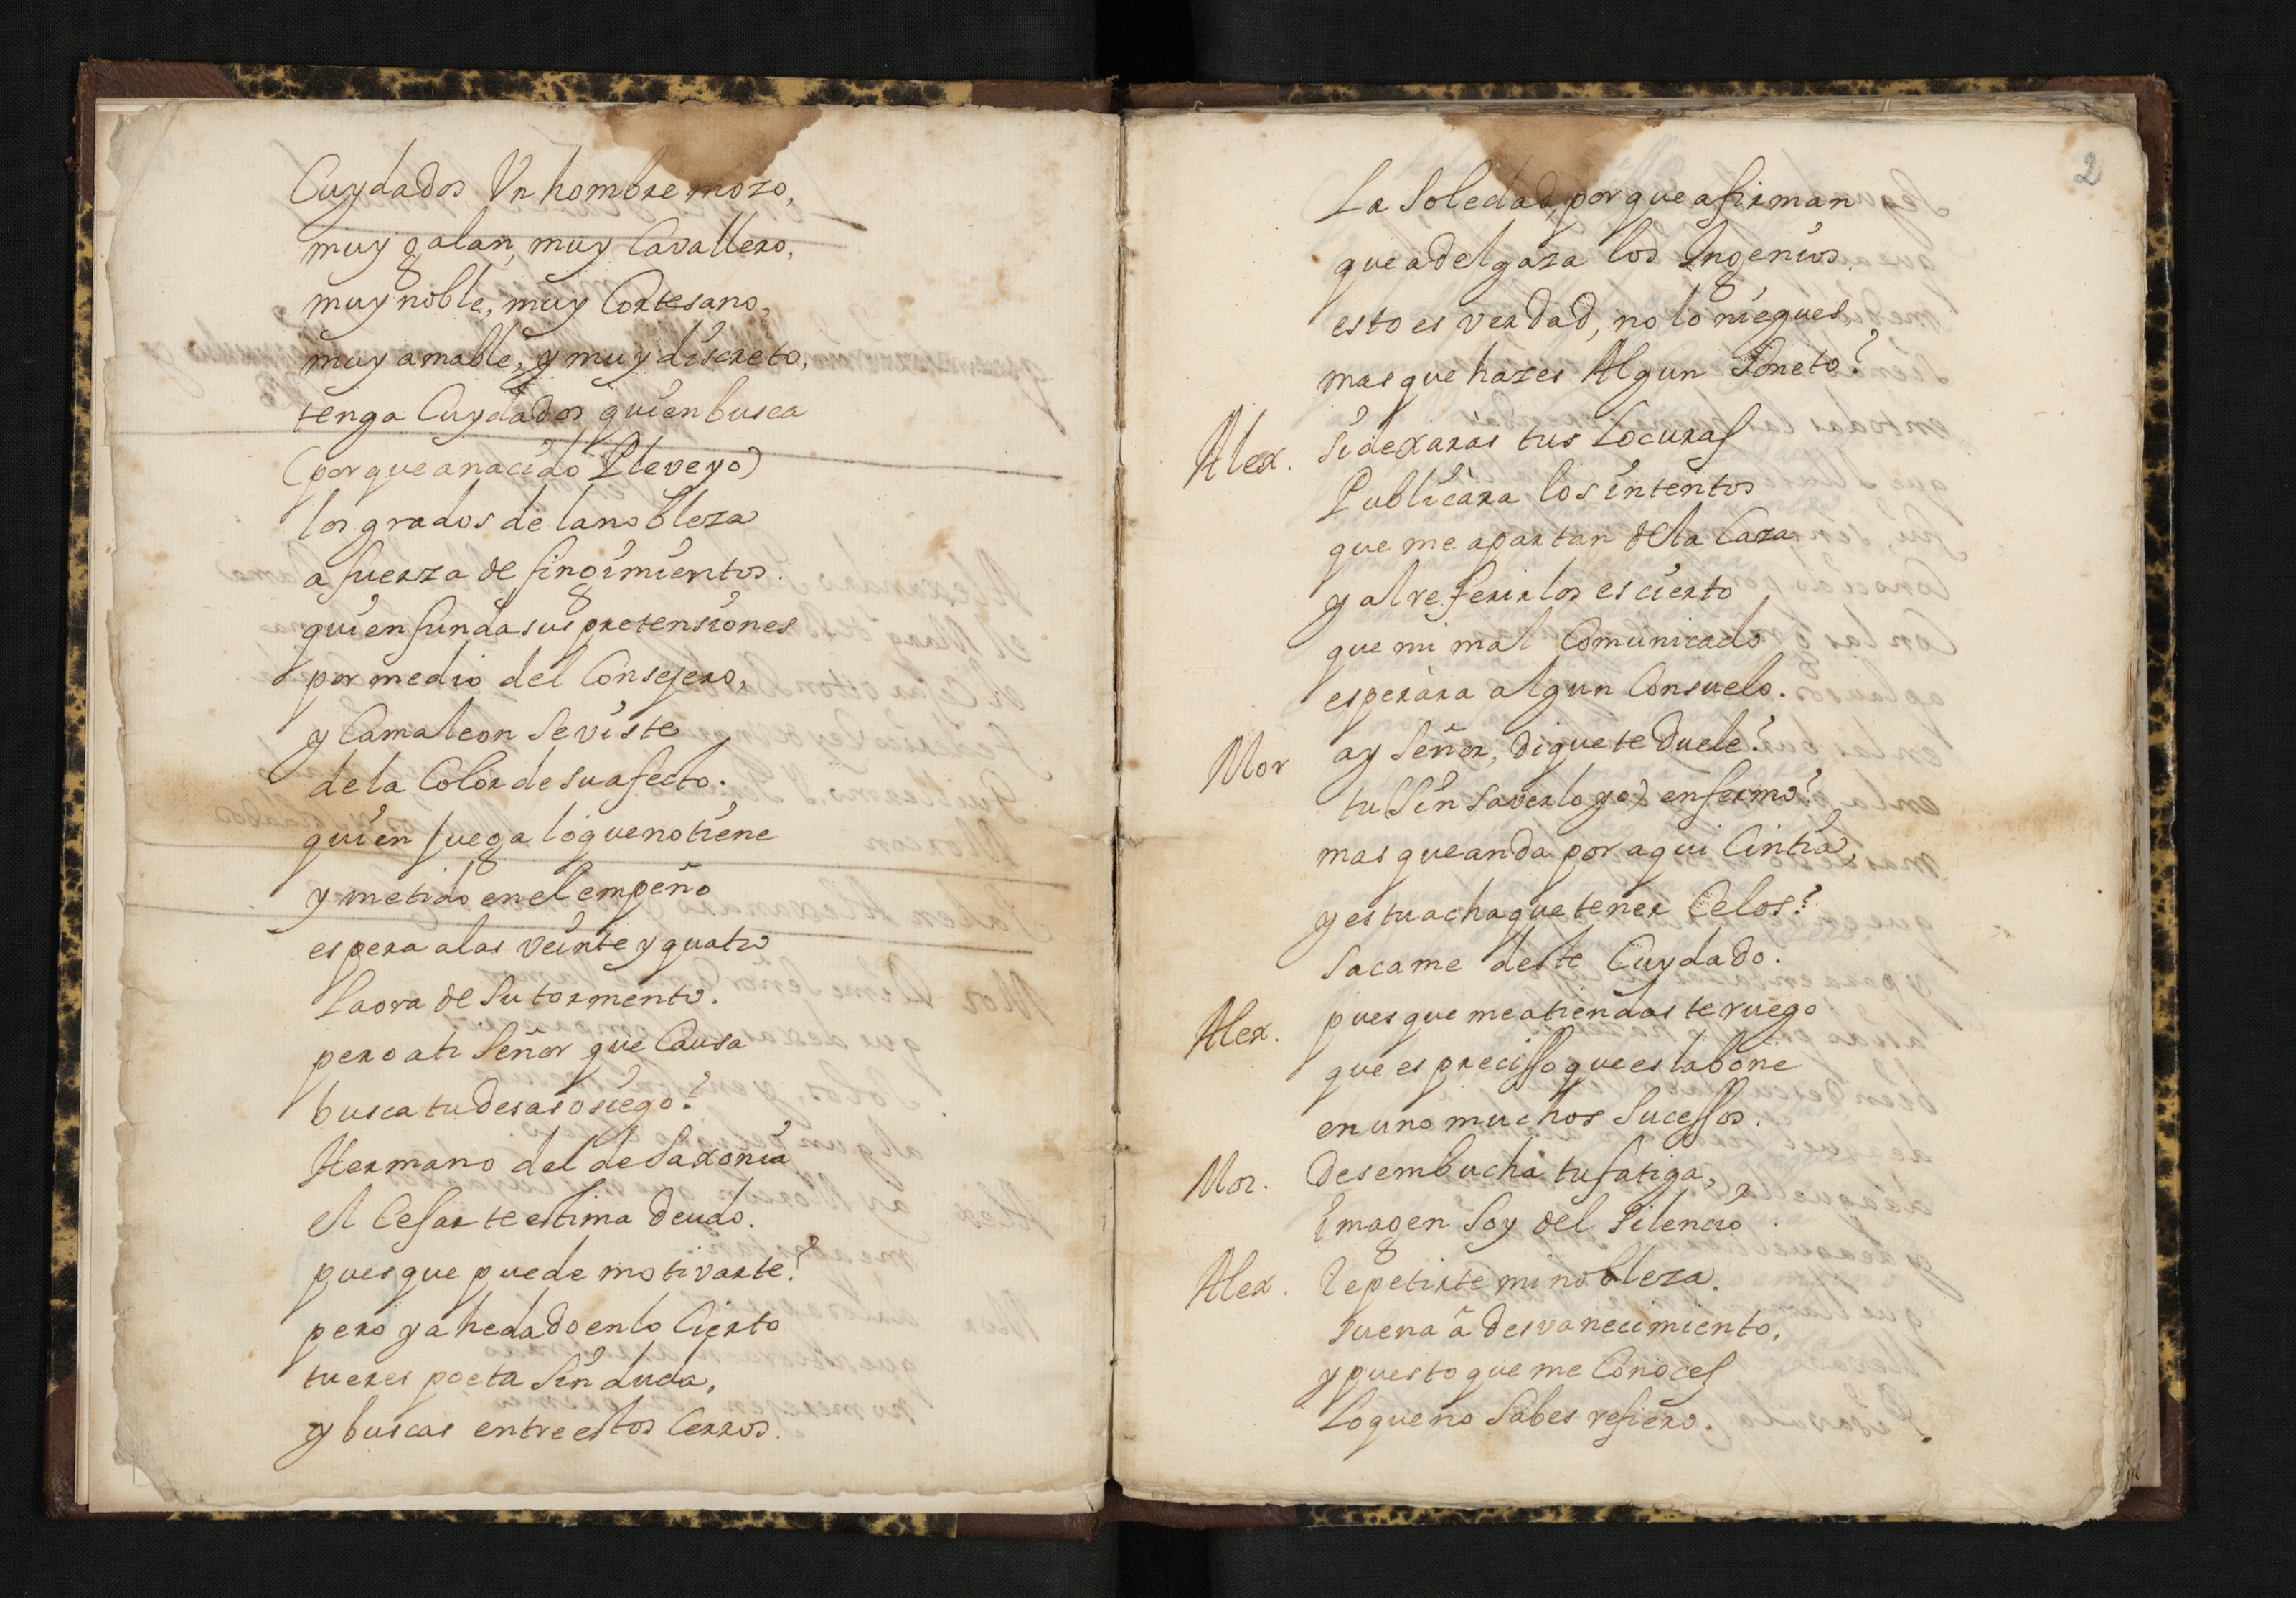 Cuydados Vn hombre mozo,
muy galan, muy Cavallero,
muy noble, muy Cortesano,
muy amable, y muy discreto,
tenga Cuydados quien busca
(por que a nacido Pleveyo)
los grados de la nobleza
a fuerza de fingimientos.
quien funda sus pretensiones
por medio del Consejero,
y Camaleon se viste
de la Color de su afecto.
quien juega lo que no tiene
y metido en el empeño
espera a las veinte y quatro
la ora de su tormento.
pero a ti Señor que Causa
busca tu desasosiego?
Hermano del de Saxonia
el Cesar te estima deudo.
pues que puede motivarte?
pero ya he dado en lo Cierto
tu eres poeta sin duda,
y buscas entre estos Cerros.
2
La Soledad, por que afirman
que adelgaza los Ingenios.
esto es verdad, no lo niegues
mas que hazes Algun Soneto?
Alex. Si dexaras tus Locuras
Publicàra los intentos
que me apartan de la Caza
y al referirlos es cierto
que mi mal Comunicado
esperàra algun Consuelo.
Mor ay Señor, di que te duele?
tu (sin saverlo yo) enfermo?
mas que anda por aqui Cintia,
y es tu achaque tener Celos?
sacame deste Cuydado.
Alex. pues que me atiendas te ruego
que es precisso que eslabone
en uno muchos sucessos.
Mor. Desembucha tu fatiga,
Imagen soy del Silencio.
Alex. Repetirte mi nobleza.
suena à desvanecimiento,
y puesto que me Conoces
Lo que no sabes refiero.